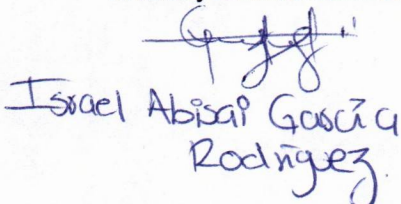 Israel Abisai García
Rodríguez